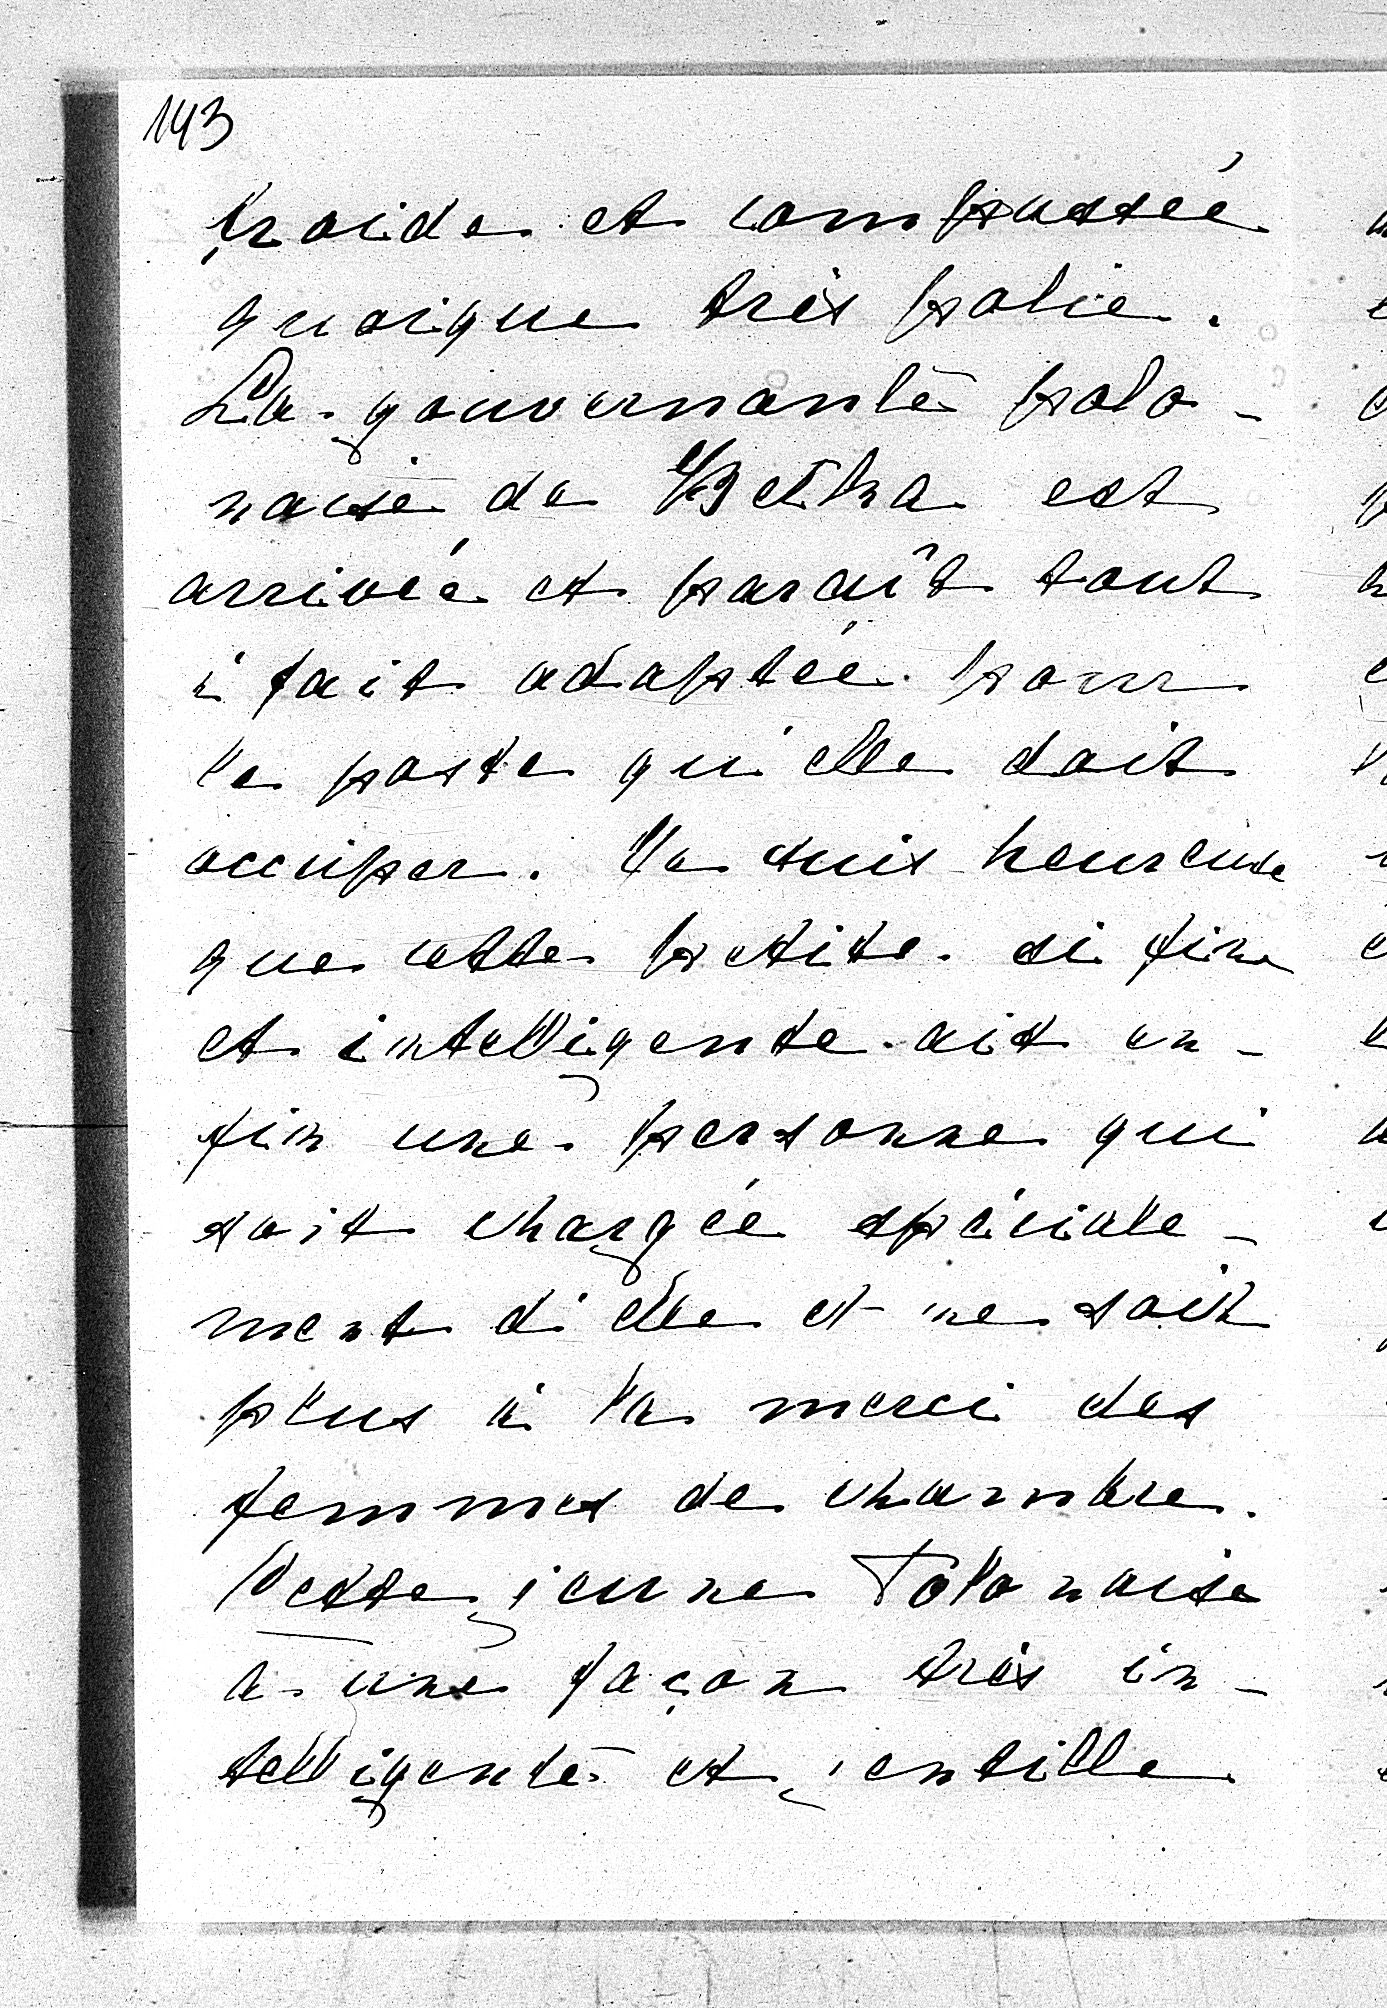 143
froide et compassée
quoique très polie.
La gouvernante polo-
naise de Betka est
arrivée et paraît tout
à fait adaptée pour
le poste qu'elle doit
occuper. Je suis heureuse
que cette petite si fine
et intelligente ait en-
fin une personne qui
soit chargée spéciale-
ment d'elle et ne soit
plus à la merci des
femmes de chambre.
Cette jeune Polonaise
a une façon très in-
telligente et gentille